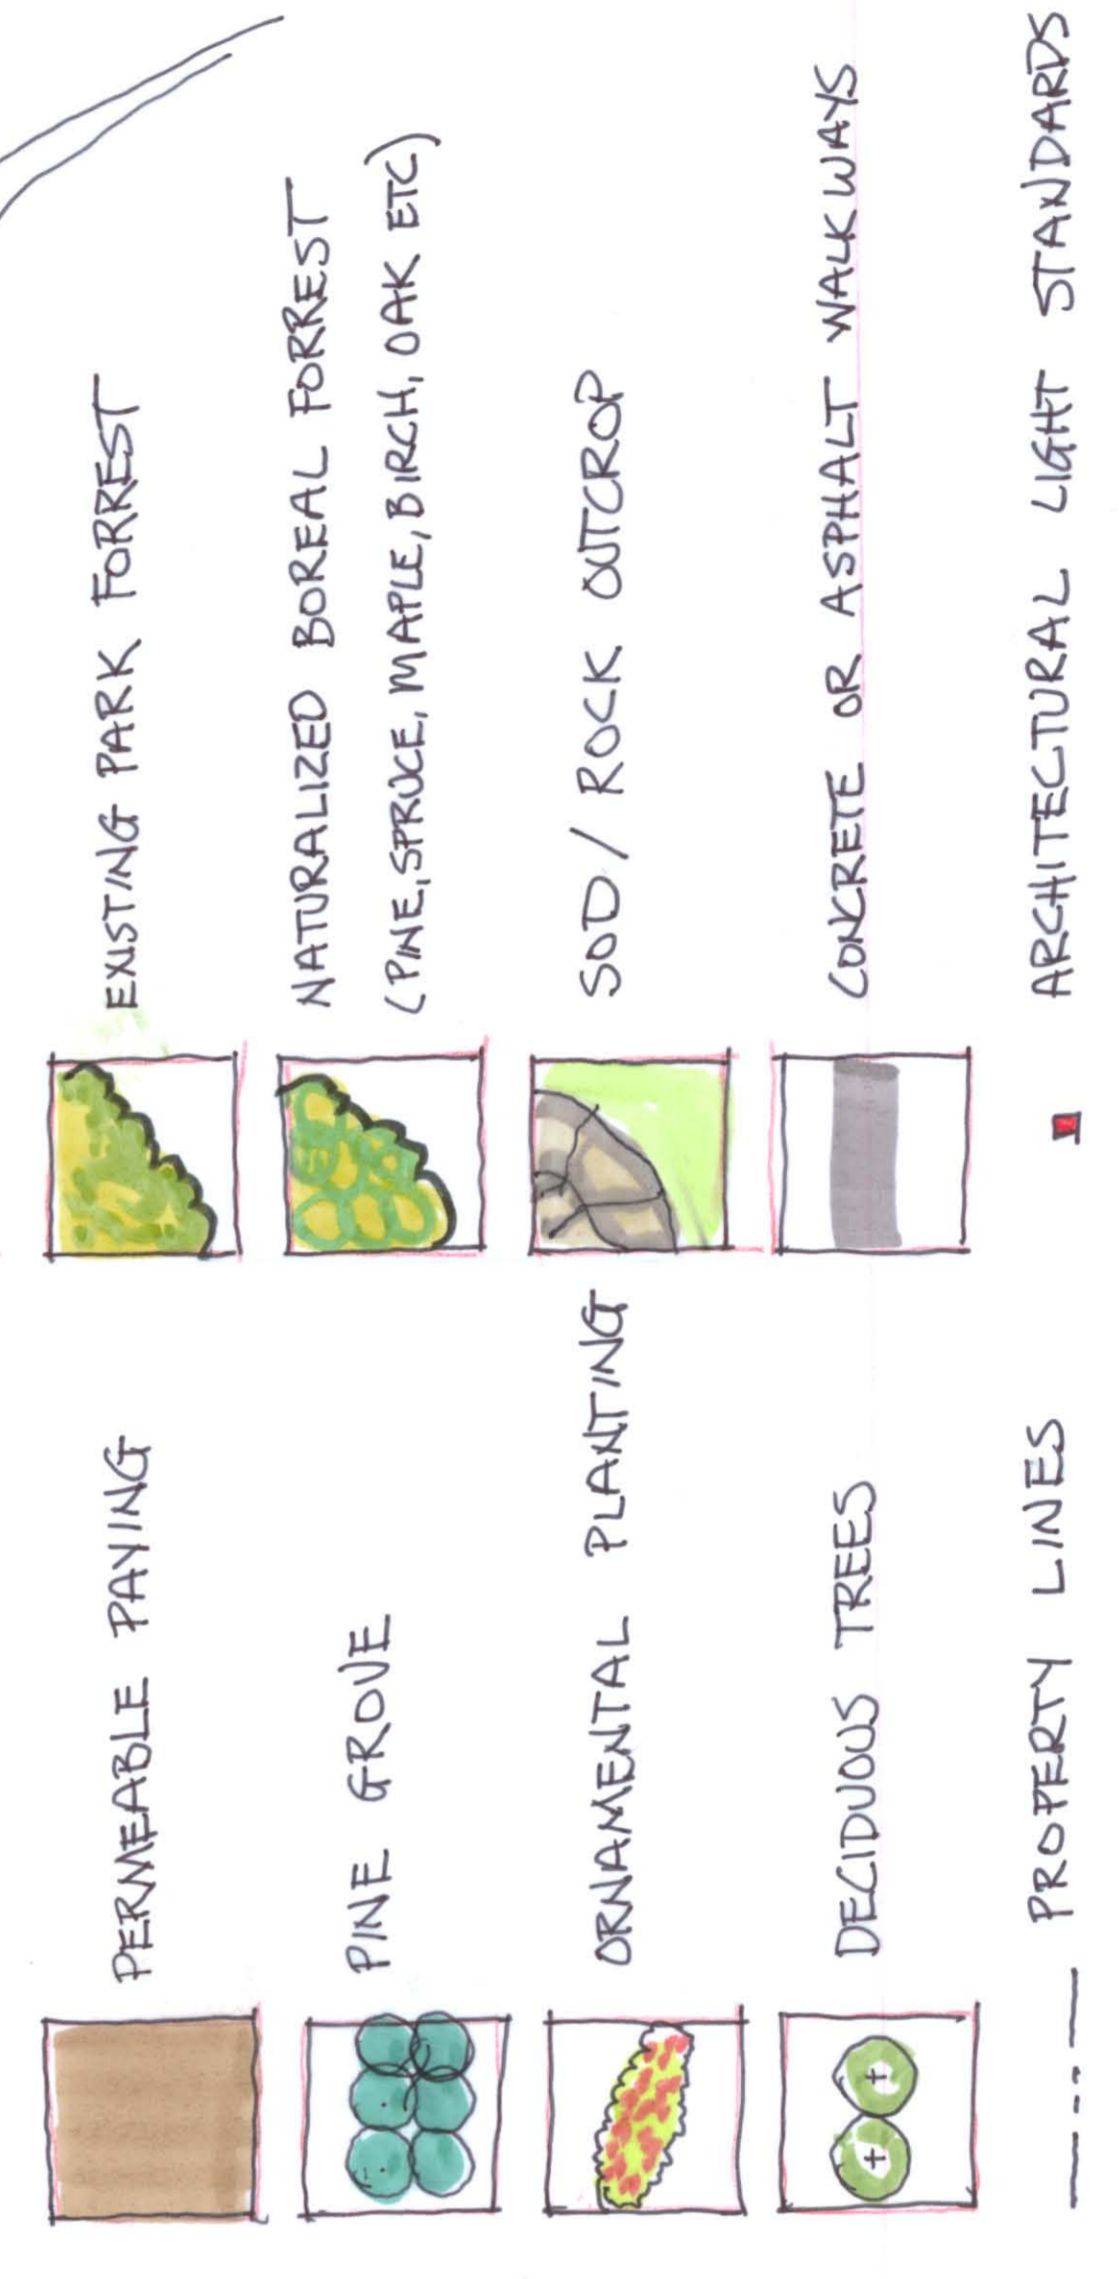 PERMEABLE PAVING
PINE GROVE
ORNAMENTAL PLANTING
DECIDUOUS TREES
PROPERTY LINES
EXISTING PARK FORREST
NATURALIZED BOREAL FORREST
(PINE, SPRUCE, MAPLE, BIRCH, OAK ETC)
SOD / ROCK OUTCROP
CONCRETE OR ASPHALT WALKWAYS
ARCHITECTURAL LIGHT STANDARDS